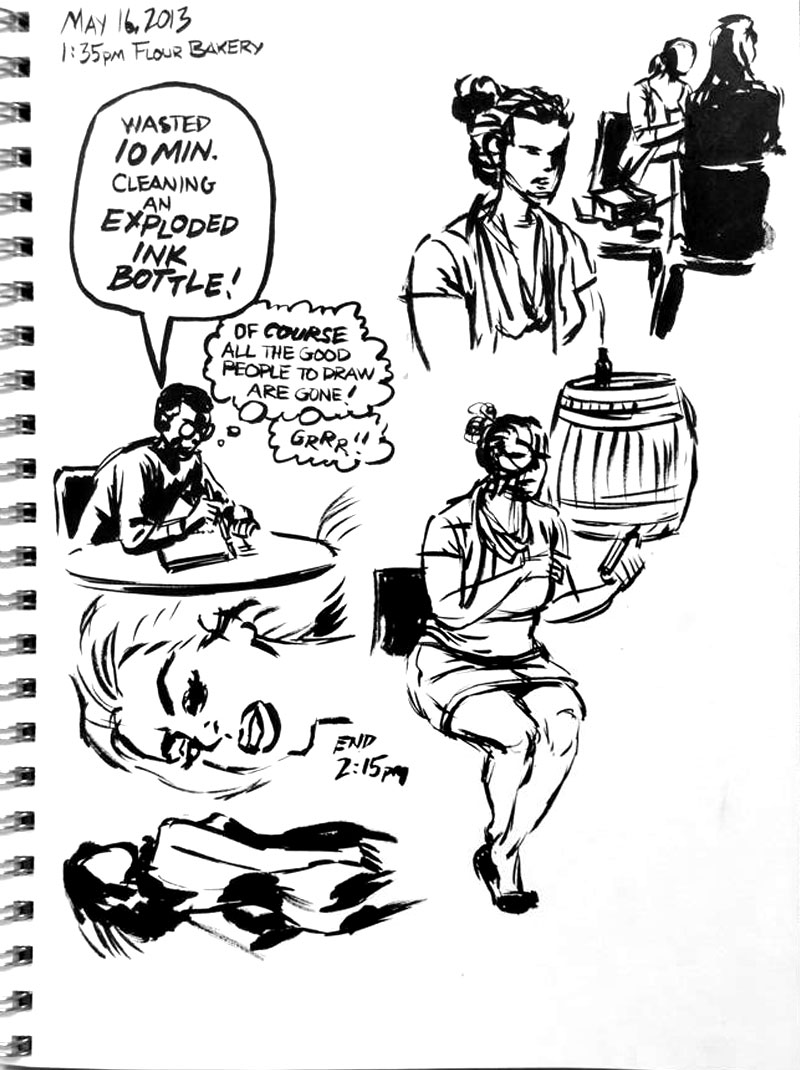 MAY 16, 2013
1:35pm FLOUR BAKERY
WASTED
10 MIN.
CLEANING
AN
EXPLODED
INK
BOTTLE!
OF COURSE
ALL THE GOOD
PEOPLE TO DRAW
ARE GONE!
GRRR!!
END
2:15pm